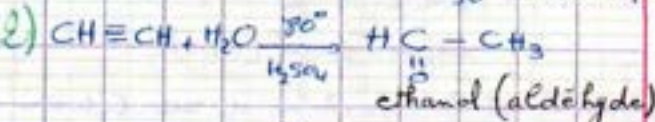 2) CH≡CH + H₂O 80° H₂SO₄ HC - CH₃
O
ethanal (aldéhyde)